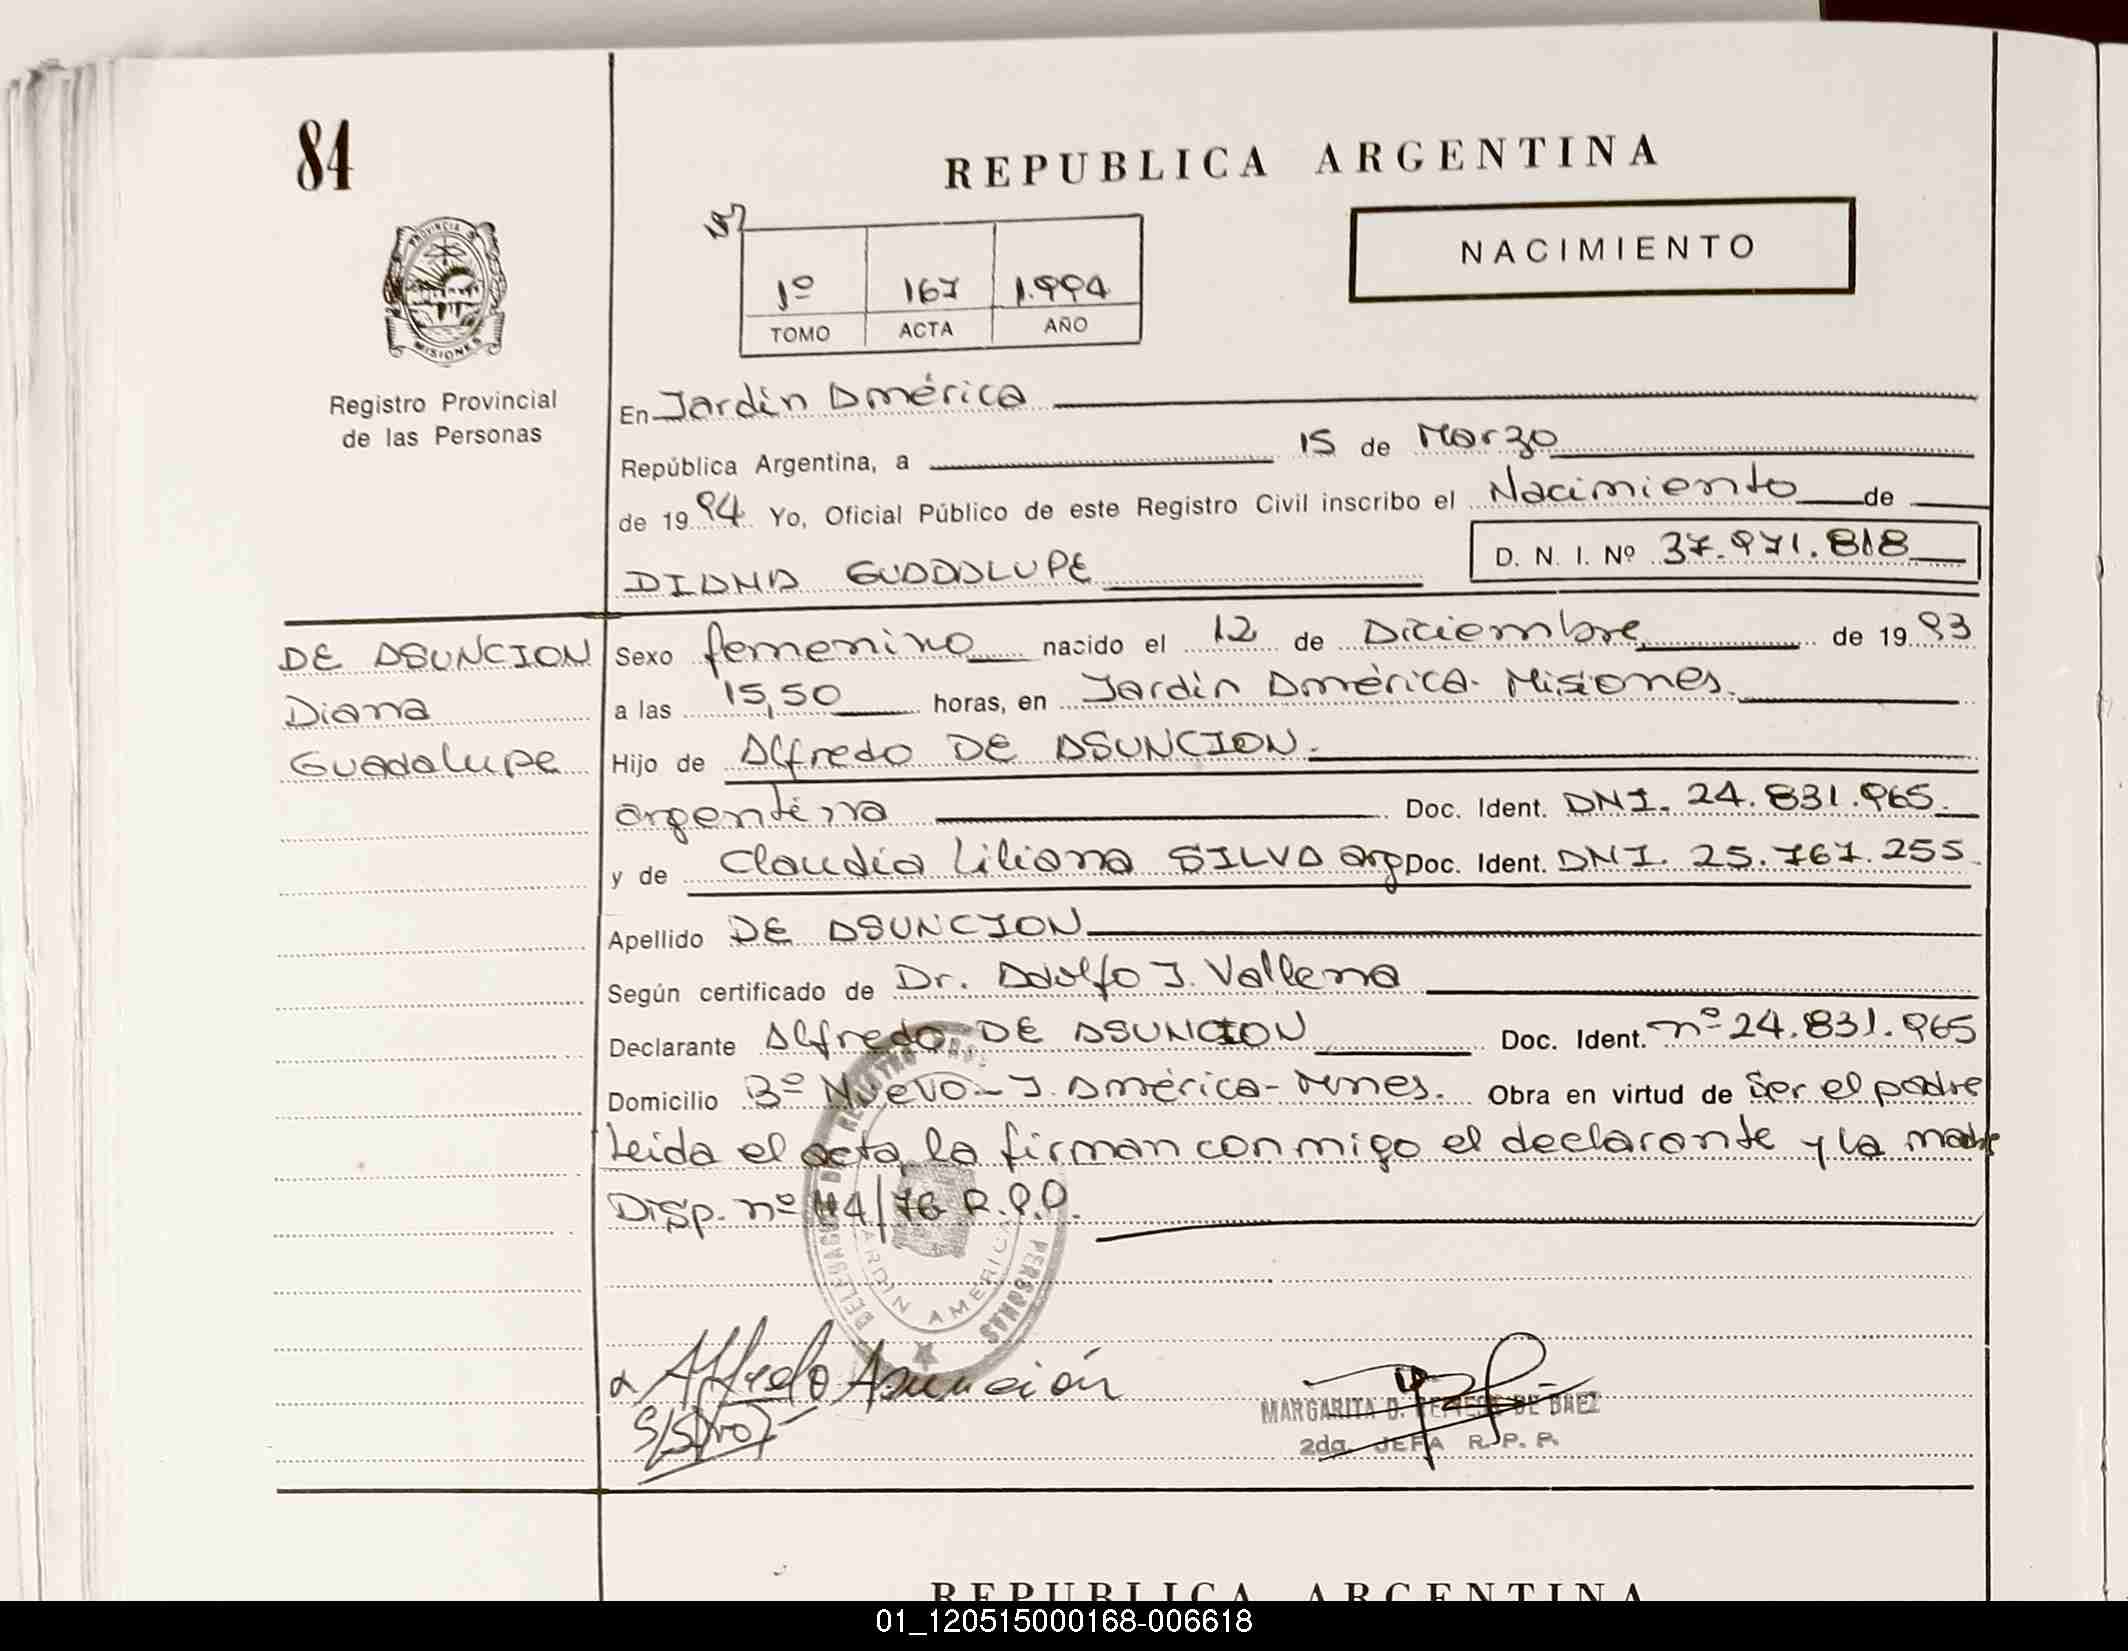 84
REPUBLICA ARGENTINA
PROVINCIA DE
MISIONES
1º 167 1.994
TOMO ACTA AÑO
NACIMIENTO
Registro Provincial
de las Personas
En Jardín América
República Argentina, a 15 de Marzo
de 1994 Yo, Oficial Público de este Registro Civil inscribo el Nacimiento de
DIANA GUADALUPE D. N. I. Nº 37.971.818
DE ASUNCION
Diana
Guadalupe
Sexo femenino nacido el 12 de Diciembre de 1993
a las 15,50 horas, en Jardín América - Misiones.
Hijo de Alfredo DE ASUNCION.
argentina Doc. Ident. DNI. 24.831.965.
y de Claudia Liliana SILVA arg Doc. Ident. DNI. 25.767.255
Apellido DE ASUNCION
Según certificado de Dr. Adolfo J.
Declarante Alfredo DE ASUNCION Doc. Ident. nº 24.831.965
Domicilio Bº Nuevo - J. América - Mnes. Obra en virtud de Ser el padre
Leida el acta, la firman conmigo el declarante y la madre
Disp. nº 114/76 R.P.P.
DELEGACION DE REGISTRO PERSONAS
JARDIN AMERICA
Alfredo Asunción
MARGARITA D. DE BAEZ
2da. JEFA R. P. P.
REPUBLICA ARGENTINA
01_120515000168-006618